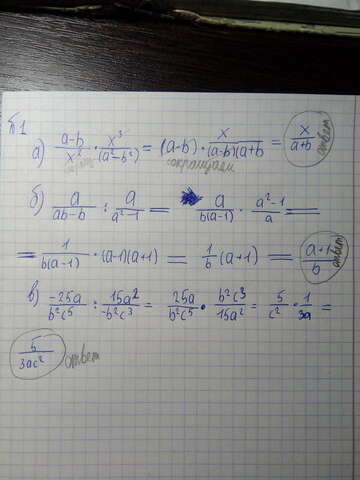 Б1
а) (a-b)/x² · x³/(a²-b²) = (a-b) · x/((a-b)(a+b) = x/(a+b) ответ
сокращаем
б) a/(ab-b) : a/(a²-1) = a/(b(a-1)) · (a²-1)/a =
= 1/(b(a-1)) · (a-1)(a+1) = 1/b (a+1) = (a+1)/b ответ
в) -25a/(b²c⁵) : 15a²/(-b²c³) = 25a/(b²c⁵) · b²c³/(15a²) = 5/c² · 1/(3a) =
5/(3ac²) ответ